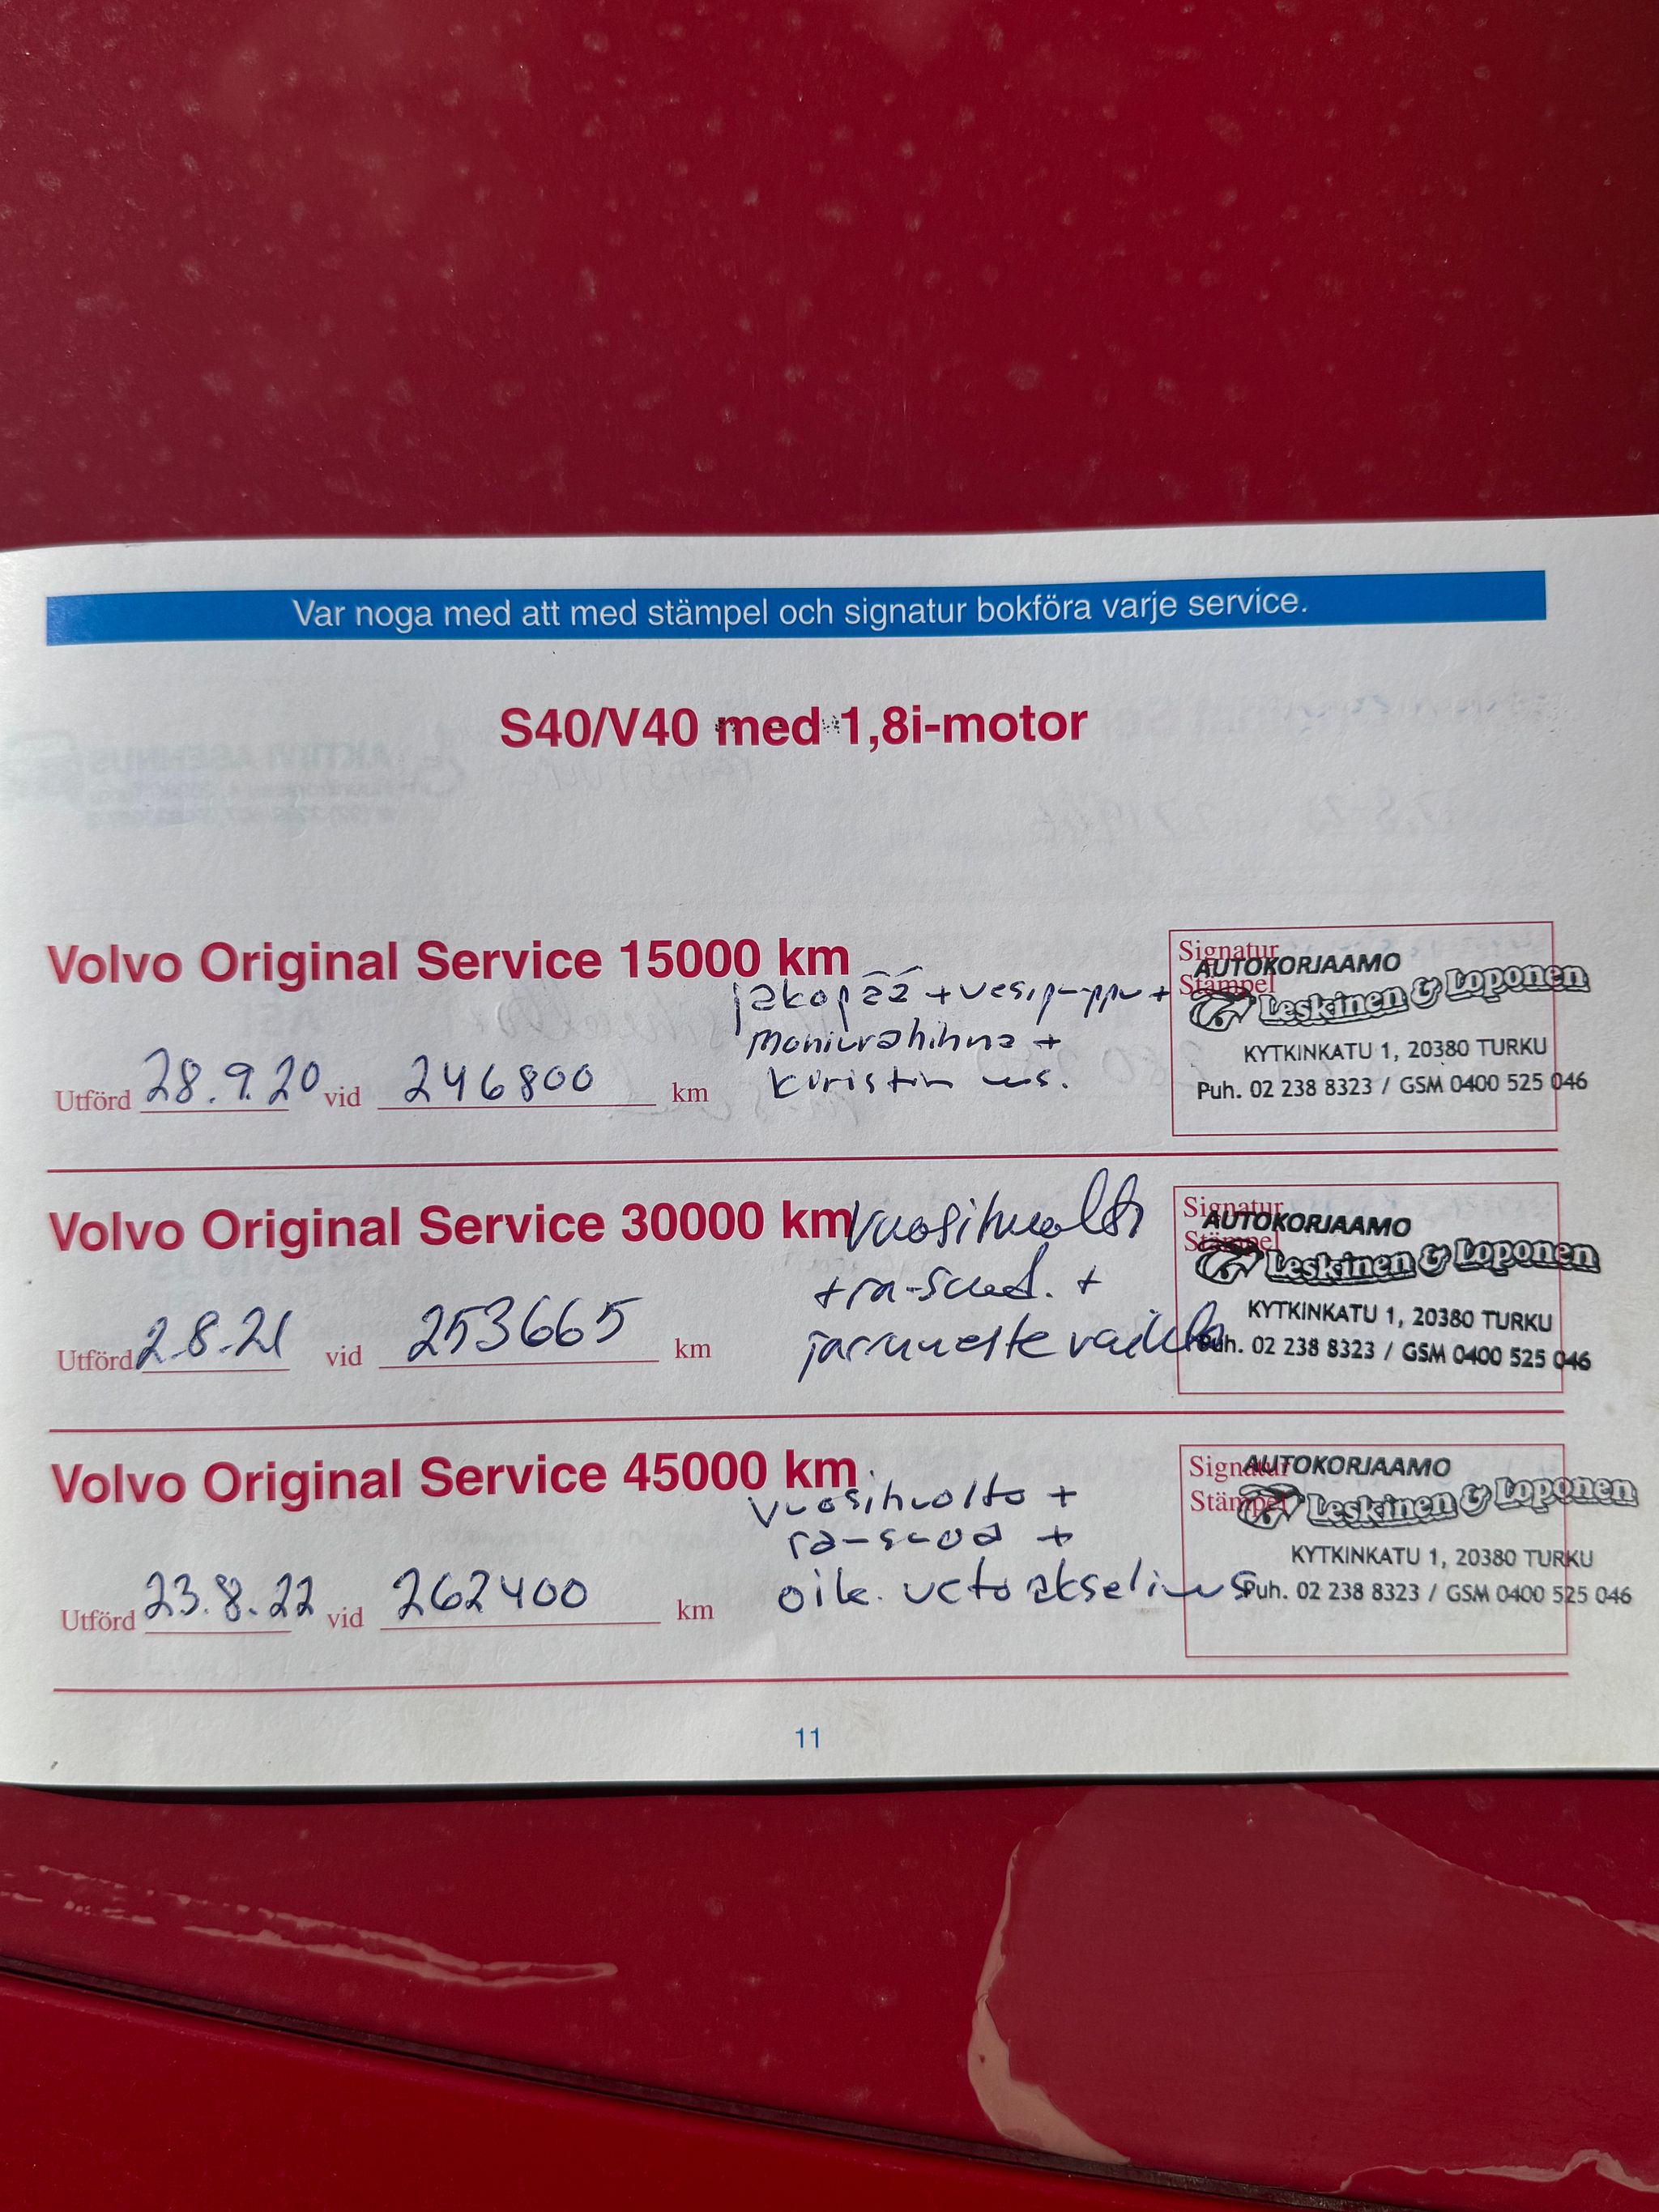 Var noga med att med stämpel och signatur bokföra varje service.
S40/V40 med 1,8i-motor
Volvo Original Service 15000 km
jakopää + vesipumppu +
moniurahihna +
kiristin uus.
Utförd 28.9.20 vid 246800 km
Signatur
Stämpel
AUTOKORJAAMO
Leskinen & Loponen
KYTKINKATU 1, 20380 TURKU
Puh. 02 238 8323 / GSM 0400 525 046
Volvo Original Service 30000 km
Vuosihuolto
+ ra-suod. +
jarruneste vaihdto
Utförd 2.8.21 vid 253665 km
Signatur
Stämpel
AUTOKORJAAMO
Leskinen & Loponen
KYTKINKATU 1, 20380 TURKU
Puh. 02 238 8323 / GSM 0400 525 046
Volvo Original Service 45000 km
vuosihuolto +
ra-suod +
oik. vetoakseli uus
Utförd 23.8.22 vid 262400 km
Signatur
Stämpel
AUTOKORJAAMO
Leskinen & Loponen
KYTKINKATU 1, 20380 TURKU
Puh. 02 238 8323 / GSM 0400 525 046
11